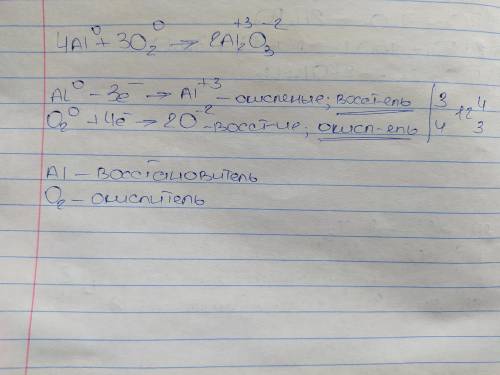 4Al⁰ + 3O₂⁰ → 2Al₂⁺³O₃⁻²
Al⁰ - 3e⁻ → Al⁺³ - окисление; восст-ель | 3 | 12 | 4
O₂⁰ + 4e⁻ → 2O⁻² - восст-ие; окисл-ель | 4 | 3
Al - восстановитель
O₂ - окислитель